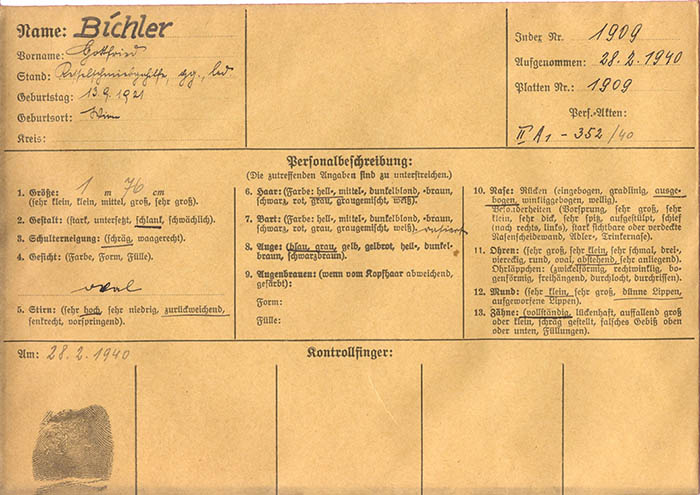 Name: Bichler
Vorname: Gottfried
Stand: gg., led.
Geburtstag: 13.9.1921
Geburtsort: Wien
Kreis:
Index Nr. 1909
Aufgenommen: 28.2.1940
Platten Nr.: 1909
Pers.-Akten:
II A1 - 352/40
Personalbeschreibung:
(Die zutreffenden Angaben sind zu unterstreichen.)
1. Größe: 1 m 76 cm
(sehr klein, klein, mittel, groß, sehr groß).
2. Gestalt: (stark, untersetzt, schlank, schwächlich).
3. Schulterneigung: (schräg, waagerecht).
4. Gesicht: (Farbe, Form, Fülle).
oval
5. Stirn: (sehr hoch, sehr niedrig, zurückweichend,
senkrecht, vorspringend).
6. Haar: (Farbe: hell-, mittel-, dunkelblond, -braun,
schwarz, rot, grau, graugemischt, weiß).
7. Bart: (Farbe: hell-, mittel-, dunkelblond, -braun,
schwarz, rot, grau, graugemischt, weiß). rasiert
8. Auge: (blau, grau, gelb, gelbrot, hell-, dunkel-
braun, schwarzbraun).
9. Augenbrauen: (wenn vom Kopfhaar abweichend,
gefärbt):
Form:
Fülle:
10. Nase: Rücken (eingebogen, gradlinig, ausge-
bogen, winkliggebogen, wellig).
Besonderheiten (Vorsprung, sehr groß, sehr
klein, sehr dick, sehr spitz, aufgestülpt, schief
(nach rechts, links), stark sichtbare oder verdeckte
Nasenscheidewand, Adler-, Trinkernase).
11. Ohren: (sehr groß, sehr klein, sehr schmal, drei-,
viereckig, rund, oval, abstehend, sehr anliegend).
Ohrläppchen: (zwickelförmig, rechtwinklig, bo-
genförmig, freihängend, durchlocht, durchrissen).
12. Mund: (sehr klein, sehr groß, dünne Lippen,
aufgeworfene Lippen).
13. Zähne: (vollständig, lückenhaft, auffallend groß
oder klein, schräg gestellt, falsches Gebiß oben
oder unten, Füllungen).
Am: 28.2.1940
Kontrollfinger: